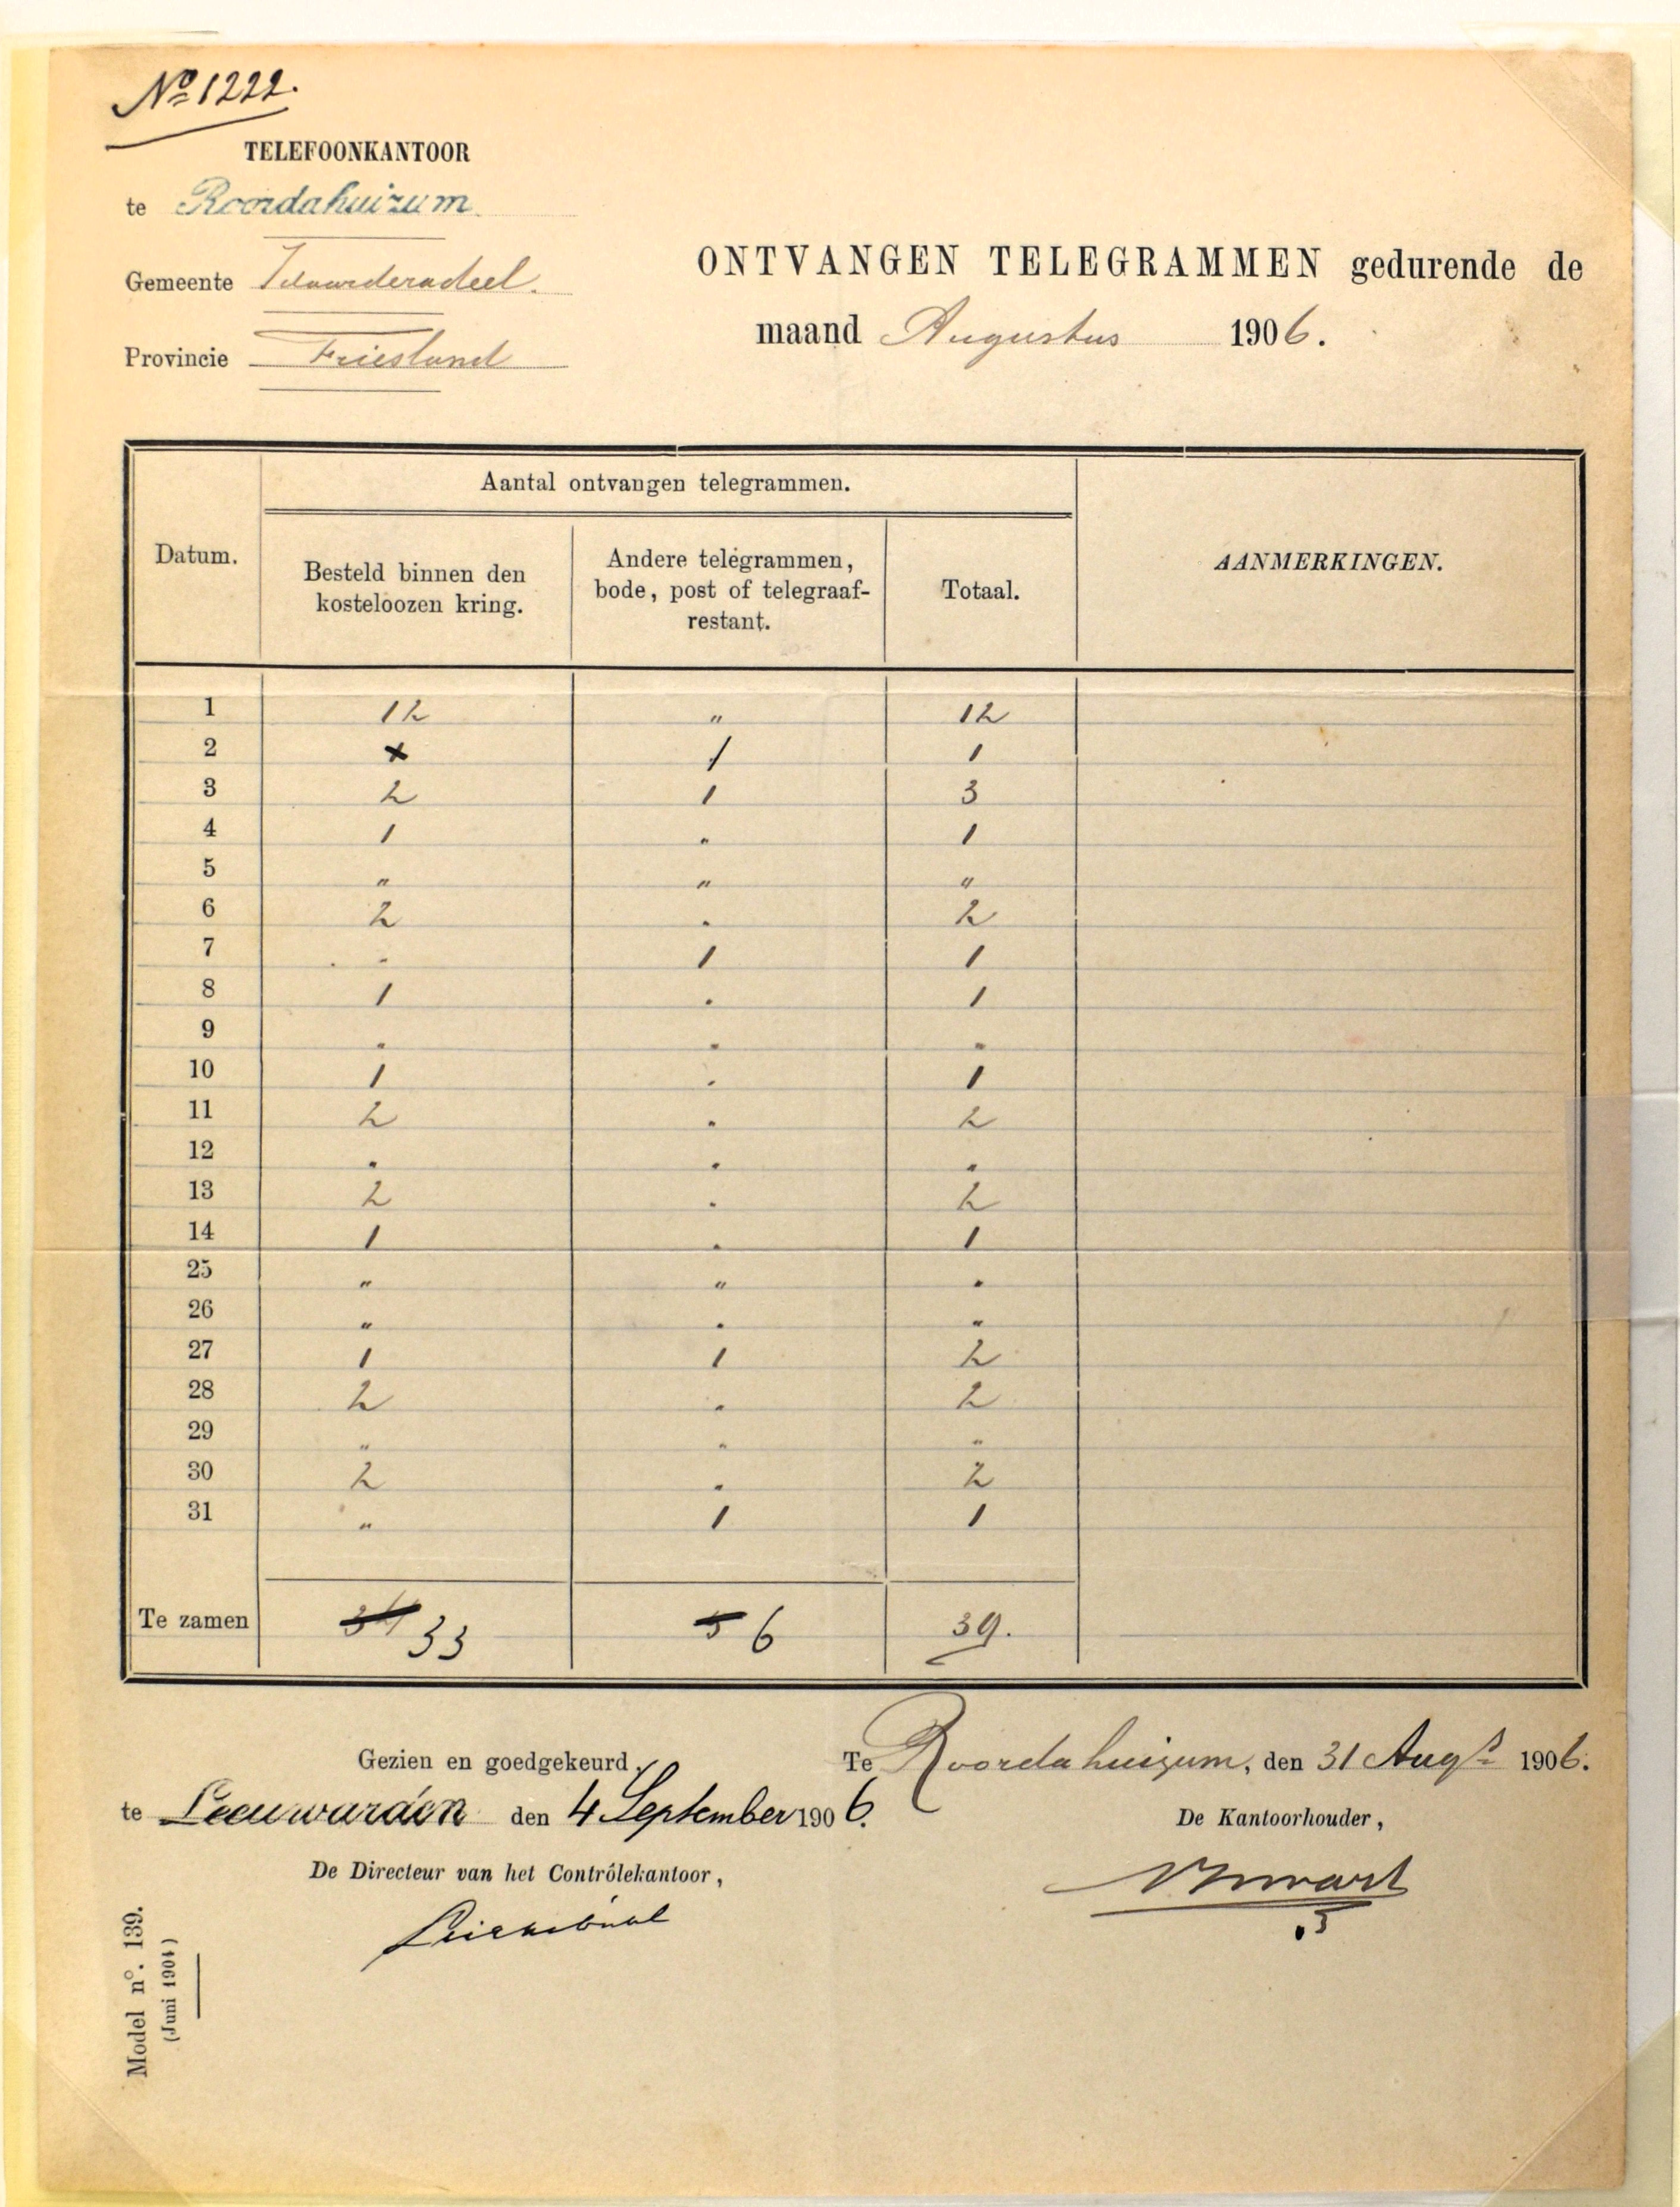 No 1222.
TELEFOONKANTOOR
te Roordahuizum
Gemeente Idaarderadeel.
Provincie Friesland
ONTVANGEN TELEGRAMMEN gedurende de
maand Augustus 1906.
Aantal ontvangen telegrammen.
Datum.
Besteld binnen den
kosteloozen kring.
Andere telegrammen,
bode, post of telegraaf-
restant.
Totaal.
AANMERKINGEN.
1 12 " 12
2 1 1
3 2 1 3
4 1 " 1
5 " " "
6 2 " 2
7 " 1 1
8 1 " 1
9 " " "
10 1 " 1
11 2 " 2
12 " " "
13 2 " 2
14 1 " 1
25 " " "
26 " " "
27 1 1 2
28 2 " 2
29 " " "
30 2 " 2
31 " 1 1
Te zamen 34 33 5 6 39.
Gezien en goedgekeurd,
te Leeuwarden den 4 September 1906.
De Directeur van het Contrôlekantoor,
Te Roordahuizum, den 31 Augs 1906.
De Kantoorhouder,
Model n°. 139.
(Juni 1904)